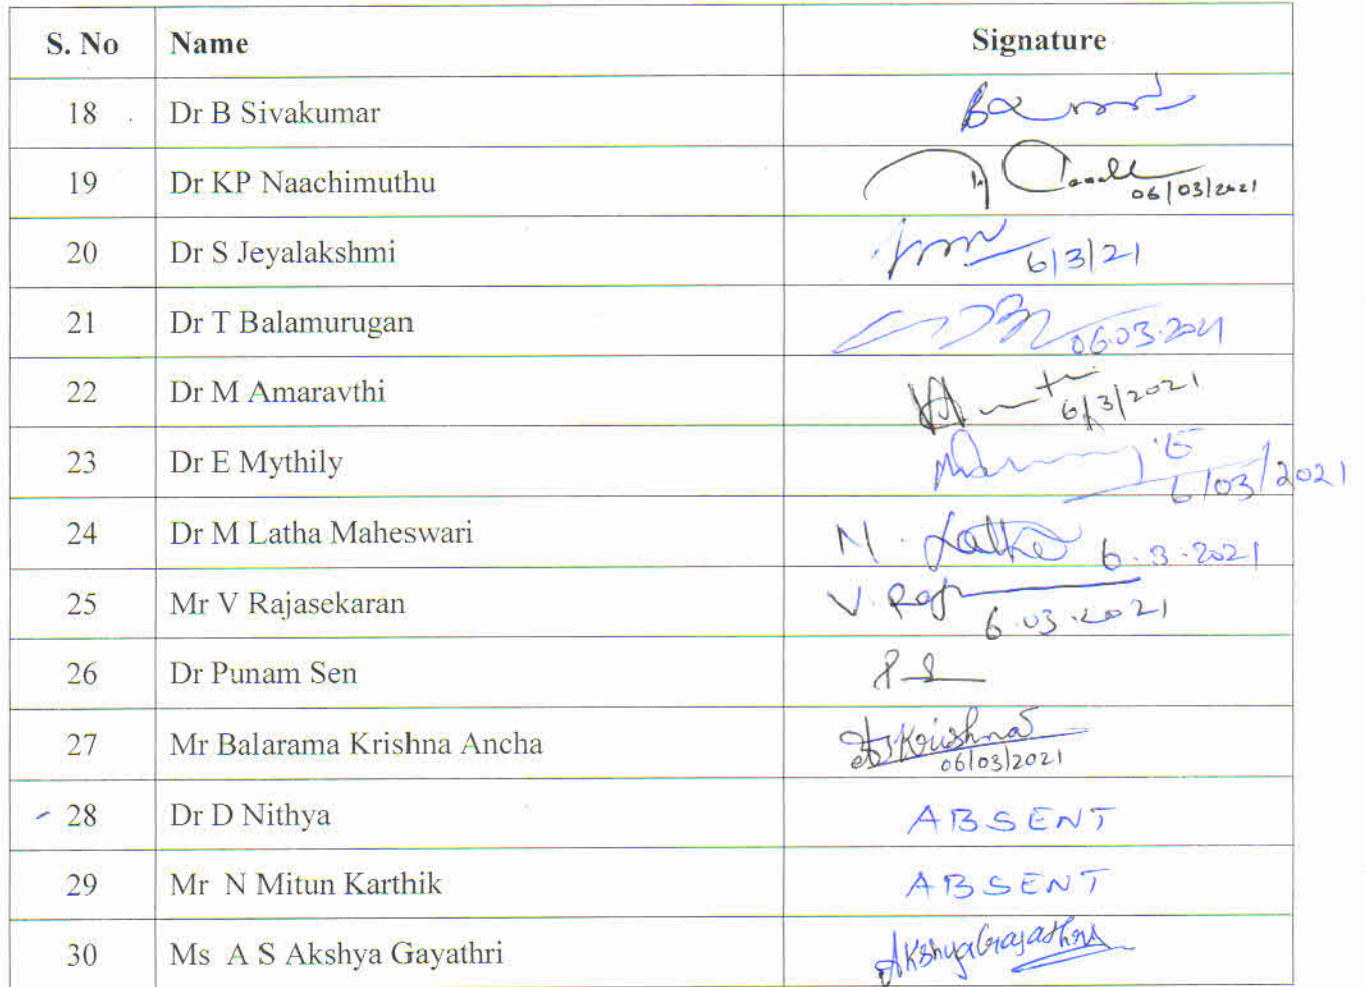 S. No Name Signature
18 Dr B Sivakumar
19 Dr KP Naachimuthu 06/03/2021
20 Dr S Jeyalakshmi 6/3/21
21 Dr T Balamurugan 06.03.2021
22 Dr M Amaravthi 6/3/2021
23 Dr E Mythily 6/03/2021
24 Dr M Latha Maheswari M. Latha 6.3.2021
25 Mr V Rajasekaran V. Raj 6.03.2021
26 Dr Punam Sen
27 Mr Balarama Krishna Ancha Krishna 06/03/2021
28 Dr D Nithya ABSENT
29 Mr N Mitun Karthik ABSENT
30 Ms A S Akshya Gayathri AkshyaGayathri